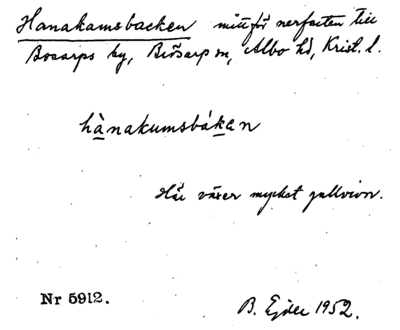 Hanakamsbacken mitt för nerfarten till
Bosarps by, Brösarp sn, Albo hd, Krist. l.
hànakumsbákan
Här växer mycket gullvivor.
Nr 5912.
B. Ejder 1952.